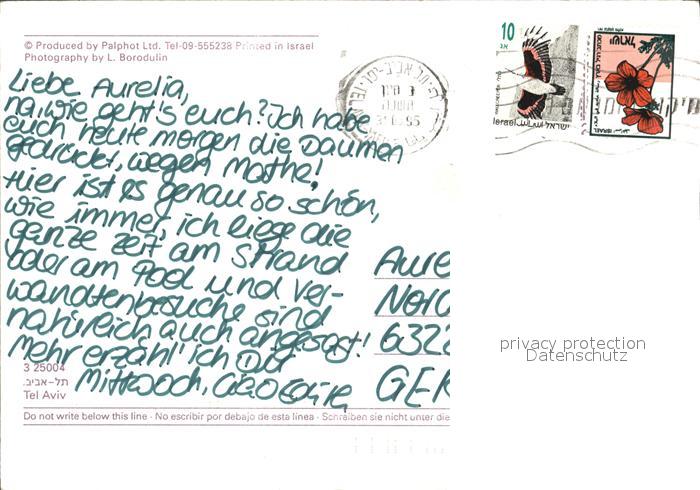 © Produced by Palphot Ltd. Tel-09-555238 Printed in Israel
Photography by L. Borodulin
Liebe Aurelia,
na, wie geht's euch? Ich habe
euch heute morgen die Daumen
gedrückt, wegen Mathe!
Hier ist es genau so schön,
wie immer, ich liege die
ganze Zeit am Strand
oder am Pool und Ver-
wandtenbesuche sind
natürlich auch angesagt!
Mehr erzähl' ich Dir
Mittwoch, Ciao
3 25004
תל-אביב.
Tel Aviv
Do not write below this line - No escribir por debajo de esta linea - Schreiben sie nicht unter die
10
Israel ישראל
ISRAEL ישראל
Aure
Nord
632
GER
privacy protection
Datenschutz